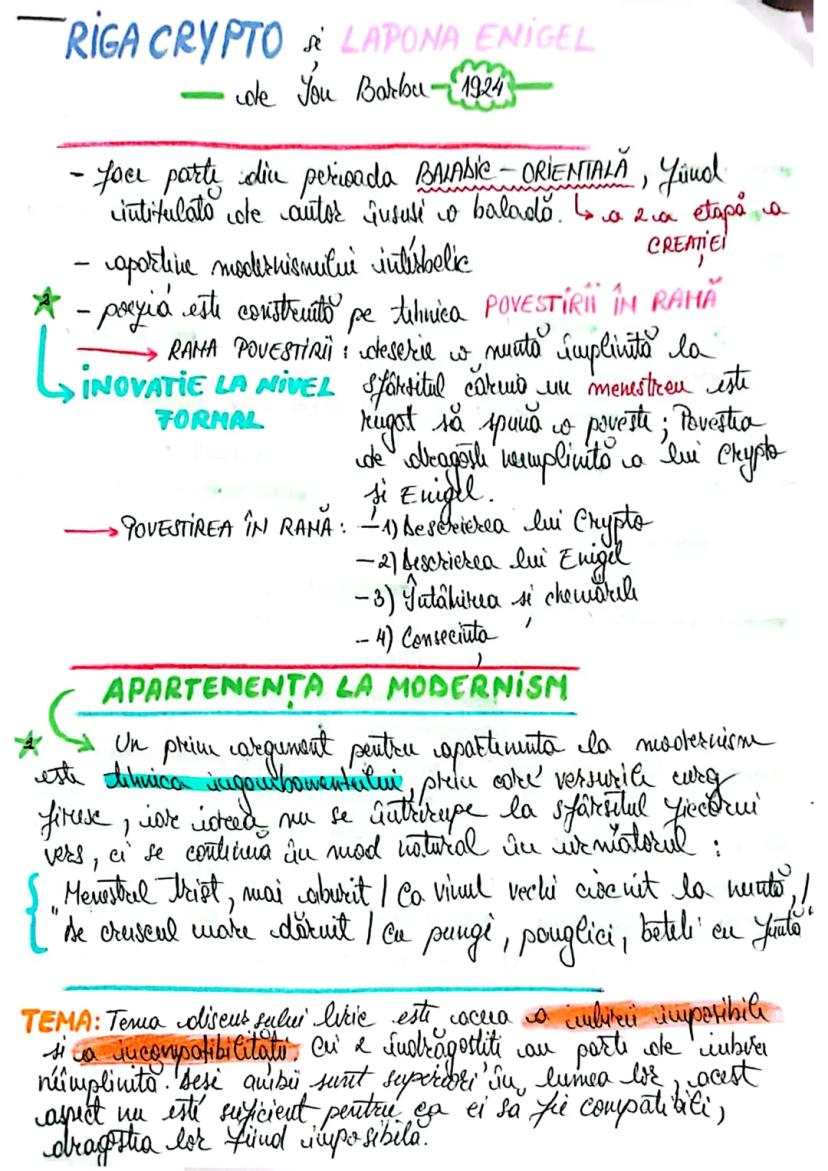 RIGA CRYPTO și LAPONA ENIGEL
de Ion Barbu 1924
- face parte din perioada BALADIC-ORIENTALĂ, fiind
intitulată de autor însuși o baladă. ↳ a 2-a etapă a
CREAȚIEI
- aparține modernismului interbelic
2 - poezia este construită pe tehnica POVESTIRII ÎN RAMĂ
→ RAMA POVESTIRII: descrie o nuntă împlinită la
INOVATIE LA NIVEL sfârșitul căruia un menestreu este
FORMAL rugat să spună o poveste; Povestea
de dragoste neîmplinită a lui Crypto
și Enigel.
→ POVESTIREA ÎN RAMĂ: -1) Descrierea lui Crypto
-2) Descrierea lui Enigel
-3) Întâlnirea și chemările
-4) Consecința
APARTENENȚA LA MODERNISM
1 Un prim argument pentru apartenența la modernism
este tehnica ingambamentului, prin care versurile curg
firesc, iar ideea nu se întrerupe la sfârșitul fiecărui
vers, ci se continuă în mod natural în următorul:
"Menestrel trist, mai aburit / Ca vinul vechi ciocnit la nuntă, /
De cuscrul mare dăruit / Cu pungi, panglici, beteli cu funtă"
TEMA: Tema discursului liric este aceea a iubirii imposibile
și a incompatibilității. Cei 2 îndrăgostiți au parte de iubire
neîmplinită. Deși ambii sunt superiori în lumea lor, acest
aspect nu este suficient pentru ca ei să fie compatibili,
dragostea lor fiind imposibilă.